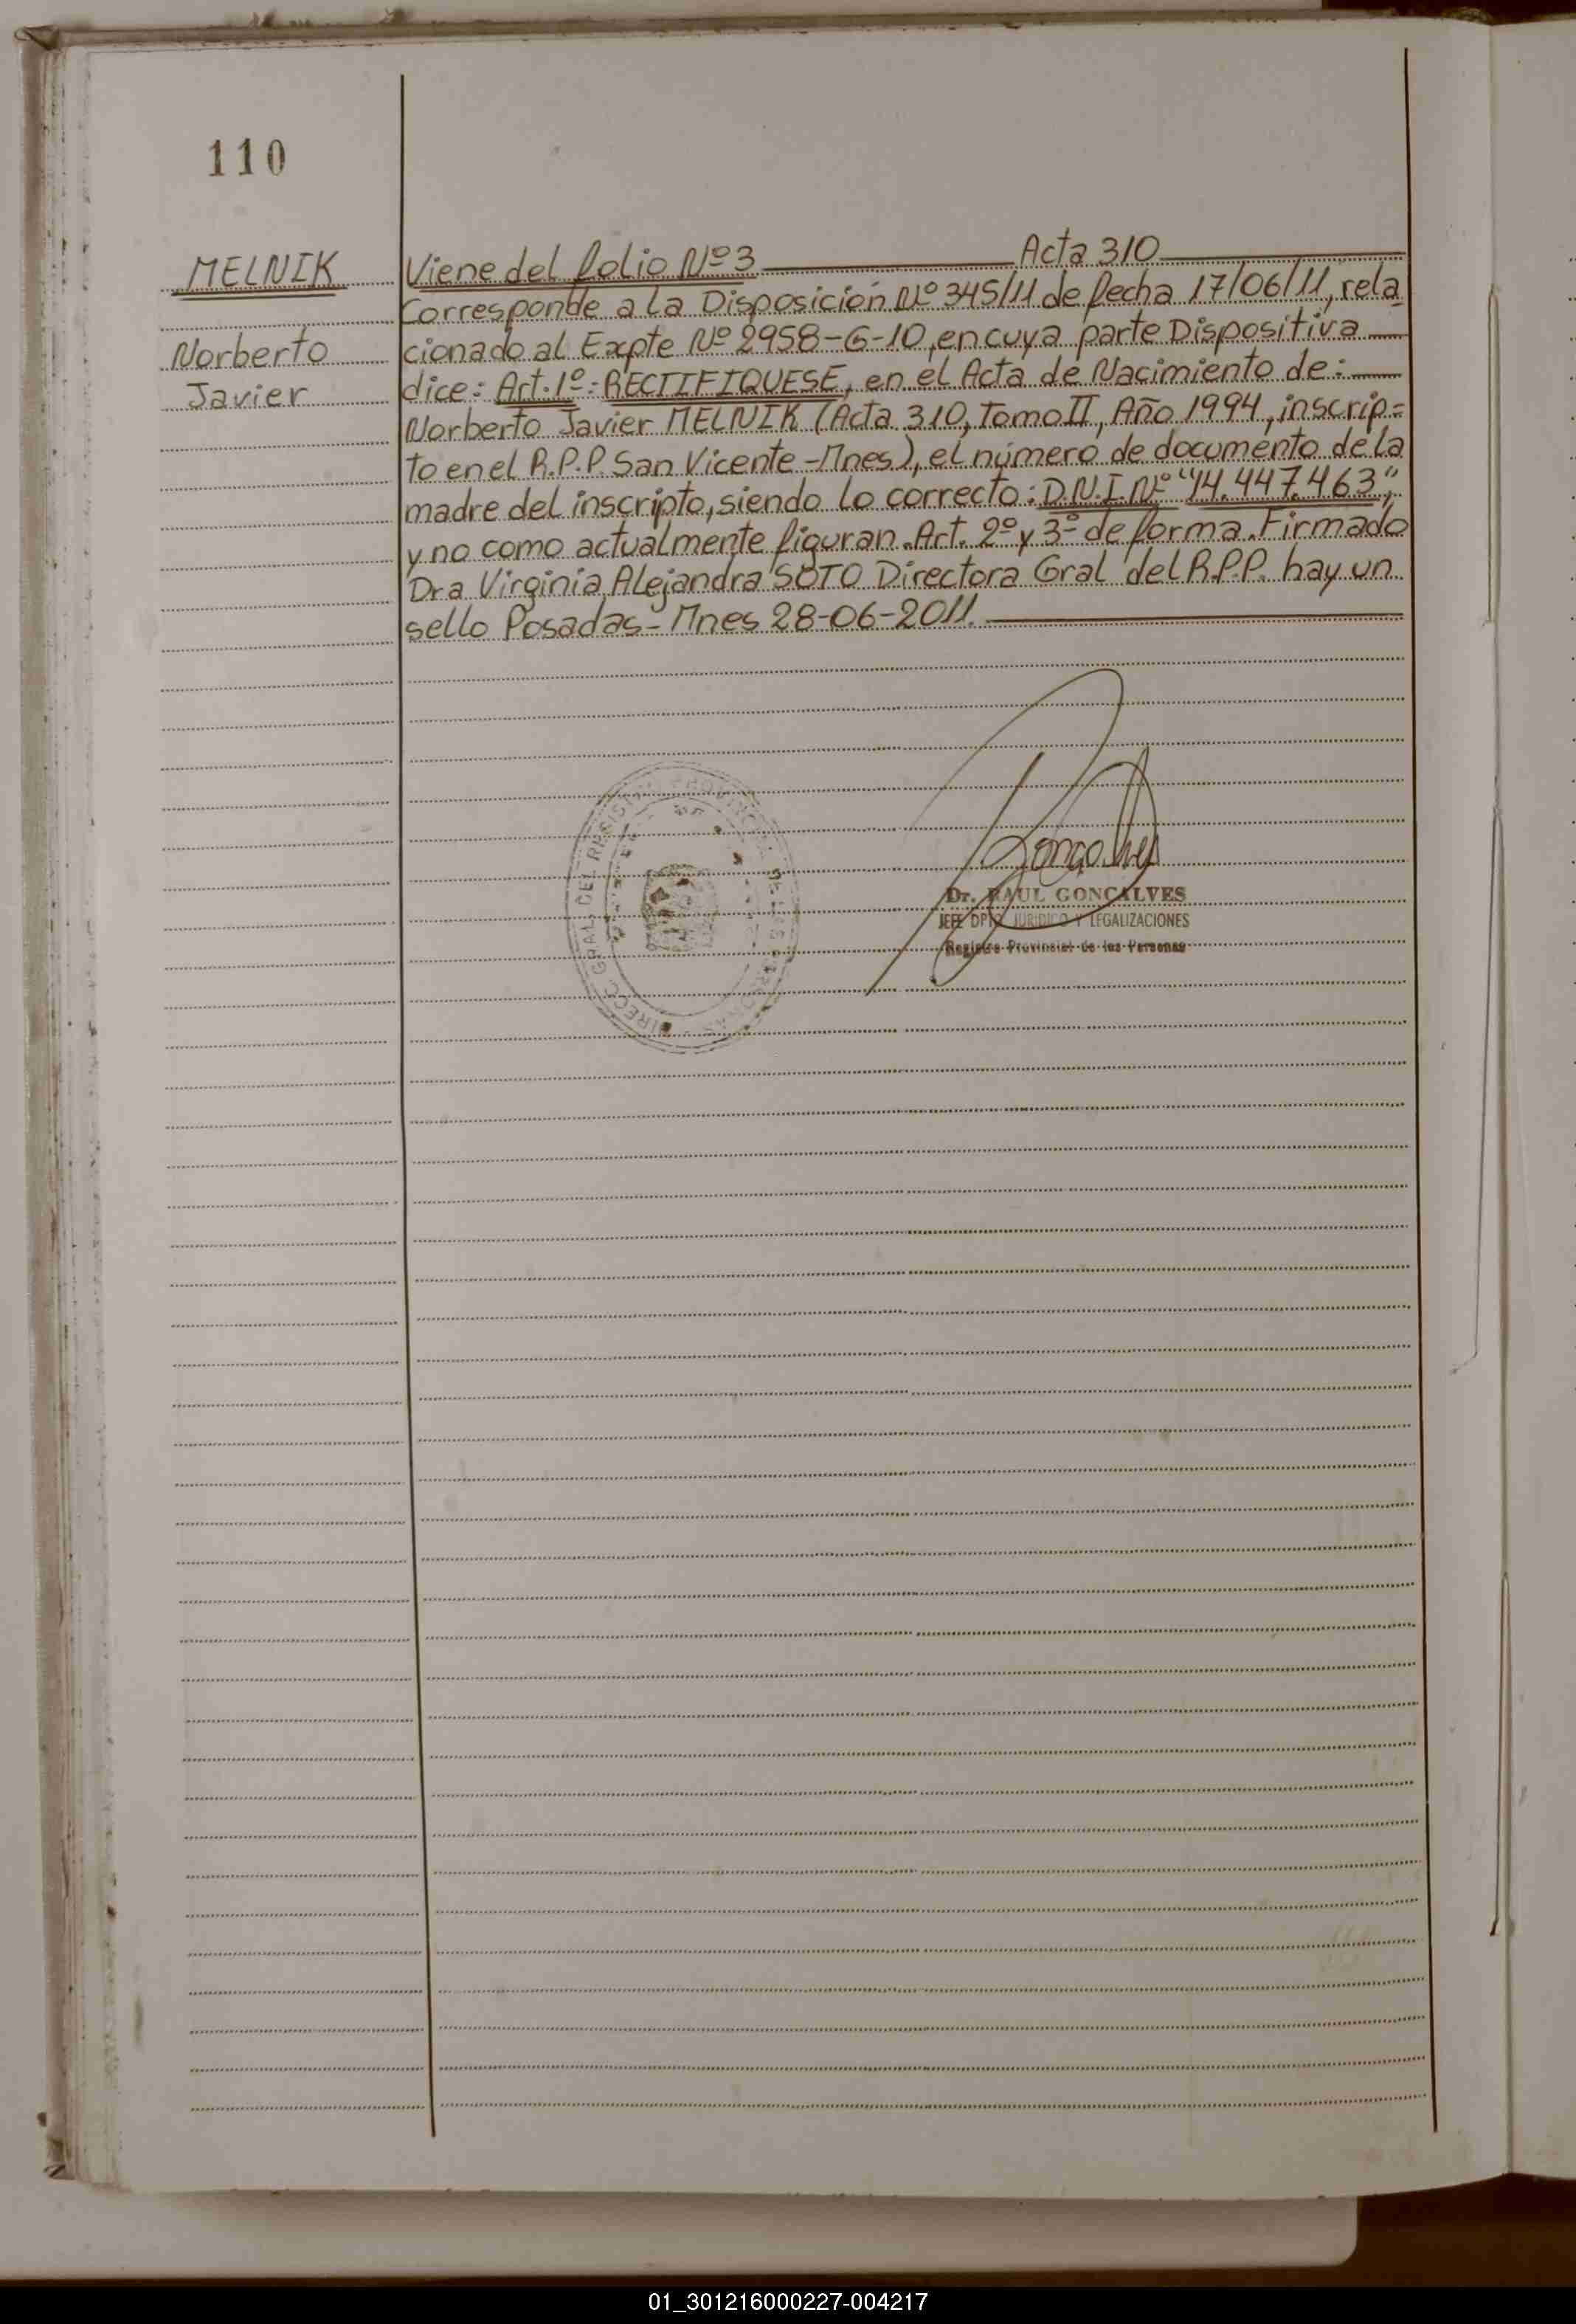 110
MELNIK
Norberto
Javier
Viene del folio Nº 3 Acta 310
Corresponde a la Disposición Nº 345/11 de fecha 17/06/11, rela-
cionado al Expte Nº 2958-G-10, en cuya parte Dispositiva
dice: Art. 1º: RECTIFIQUESE, en el Acta de Nacimiento de:
Norberto Javier MELNIK (Acta 310, Tomo II, Año 1994, inscrip-
to en el R.P.P. San Vicente-Mnes), el número de documento de la
madre del inscripto, siendo lo correcto: D.N.I. Nº "14.447.463",
y no como actualmente figuran. Art. 2º y 3º de forma. Firmado
Dra Virginia Alejandra SOTO Directora Gral del R.P.P. hay un
sello Posadas-Mnes 28-06-2011.
DIRECC. GRAL. DEL REGISTRO PROVINCIAL
Dr. RAUL GONCALVES
JEFE DPTO JURIDICO Y LEGALIZACIONES
Registro Provincial de las Personas
01_301216000227-004217